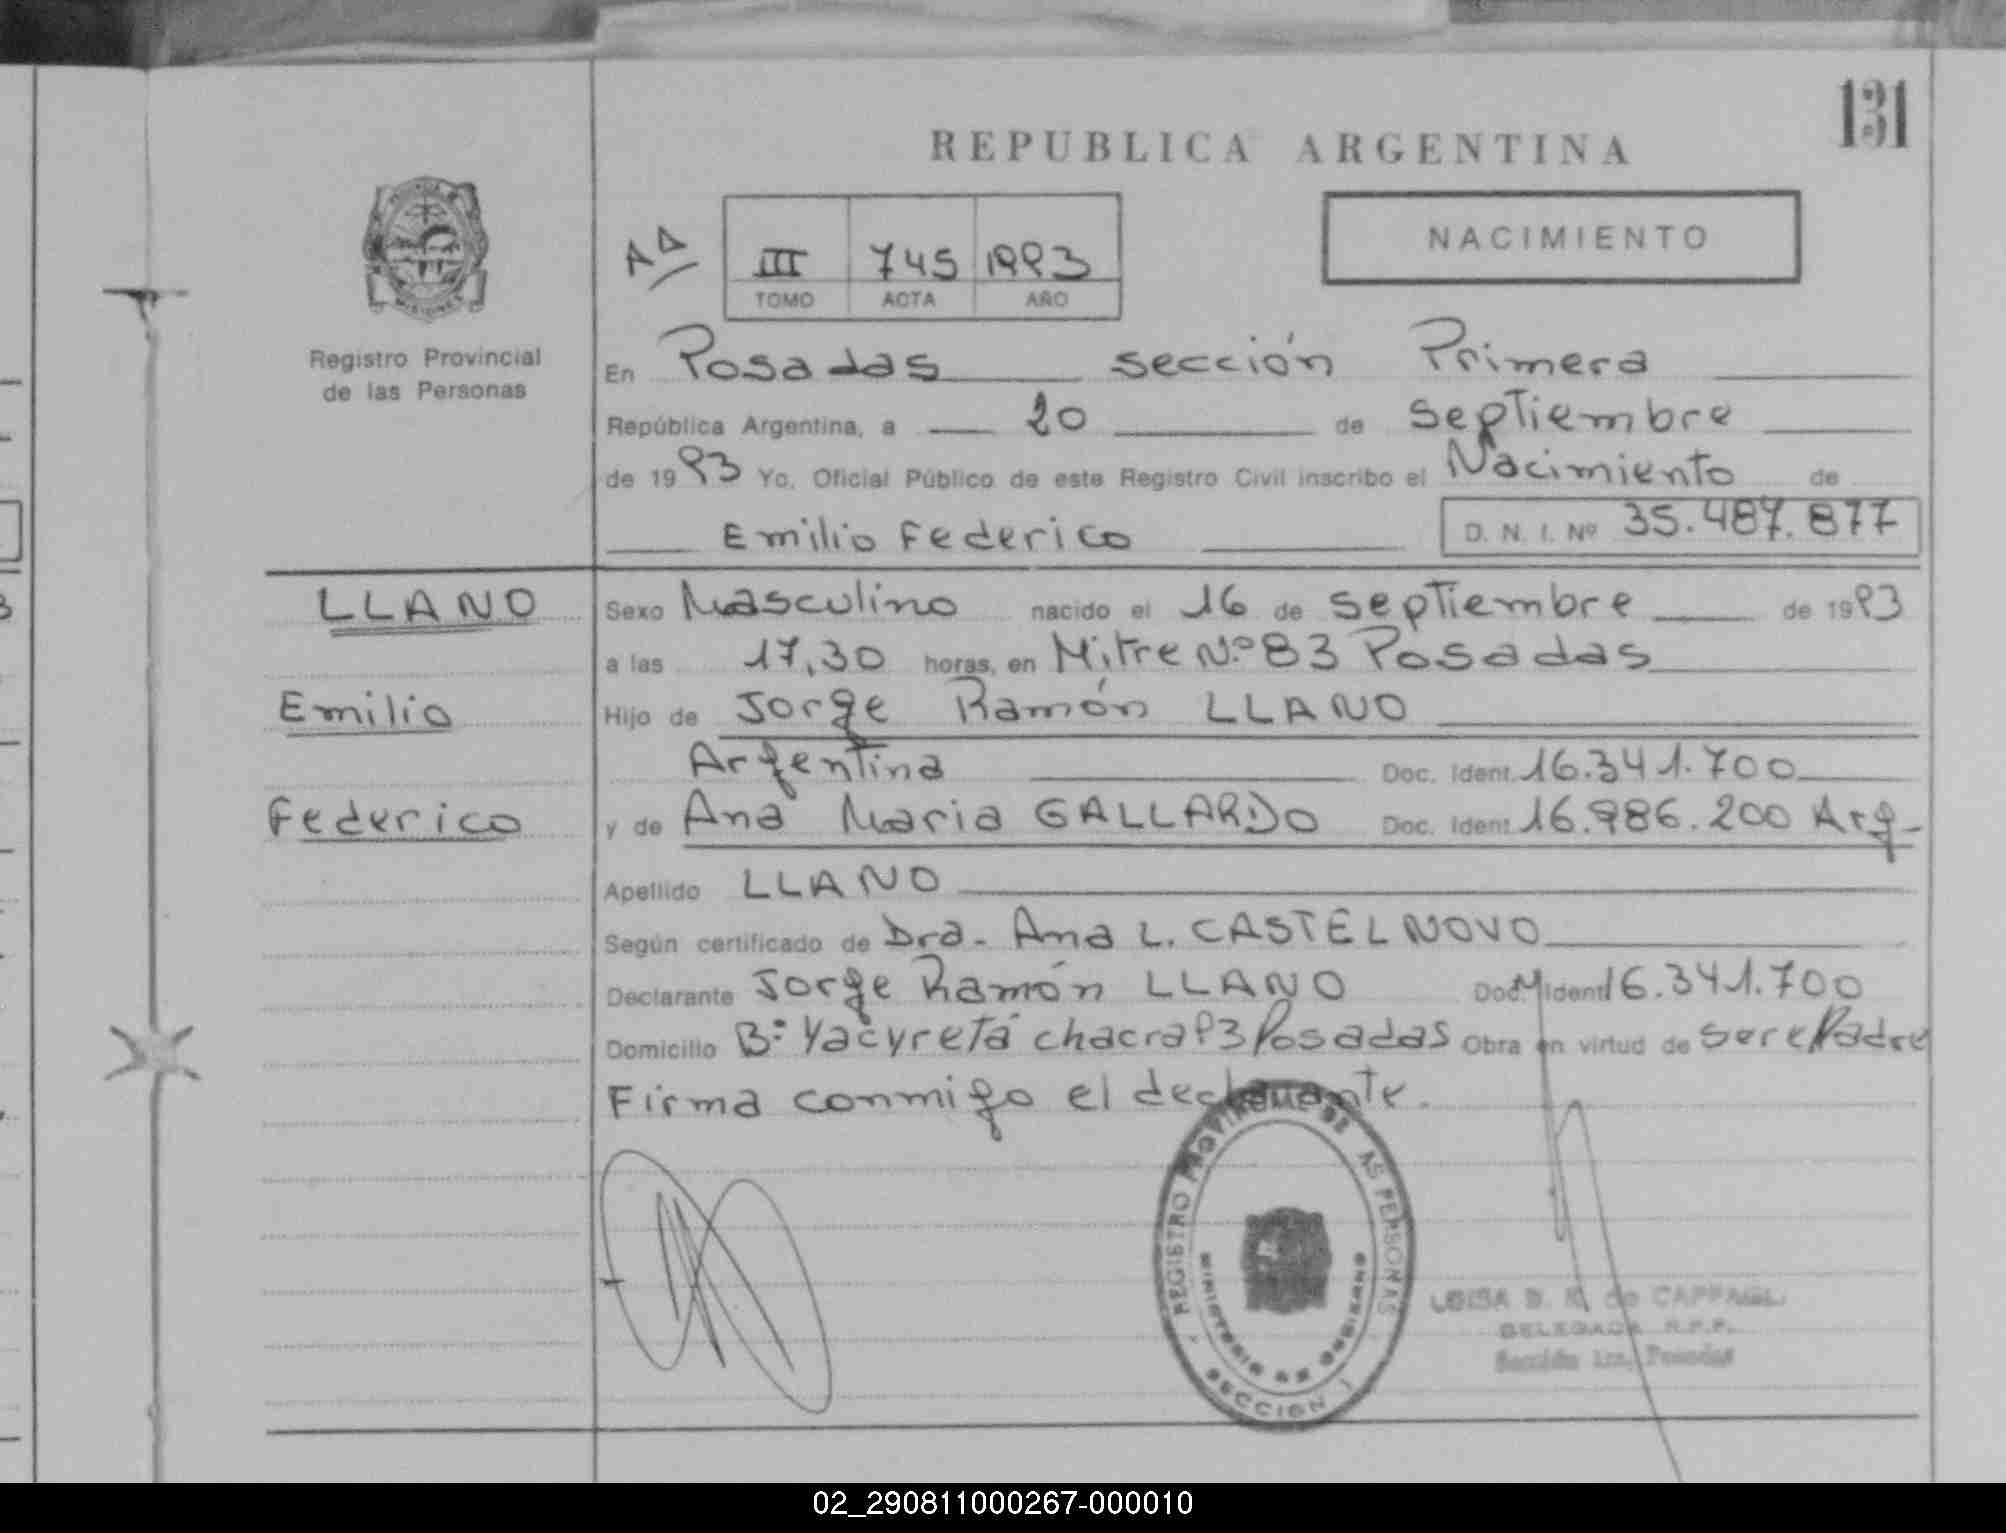 131
REPUBLICA ARGENTINA
NACIMIENTO
III 745 1993
TOMO ACTA AÑO
Registro Provincial
de las Personas
En Posadas sección Primera
República Argentina, a 20 de septiembre
de 1993 Yo, Oficial Público de este Registro Civil inscribo el Nacimiento de
Emilio Federico D. N. I. Nº 35.487.877
LLANO
Emilio
Federico
Sexo Masculino nacido el 16 de septiembre de 1993
a las 17,30 horas, en Mitre N.º 83 Posadas
Hijo de Jorge Ramón LLANO
Argentina Doc. Ident. 16.341.700
y de Ana Maria GALLARDO Doc. Ident. 16.986.200 Arg-
Apellido LLANO
Según certificado de Dra. Ana L. CASTELNOVO
Declarante Jorge Ramón LLANO Doc. Ident. 16.341.700
Domicilio Bº Yacyretá chacra 93 Posadas Obra en virtud de ser el Padre
Firma conmigo el declarante.
REGISTRO PROVINCIAL DE LAS PERSONAS
MINISTERIO DE GOBIERNO
SECCION 1
DELEGADA R.P.P.
Sección 1ra. Posadas
02_290811000267-000010